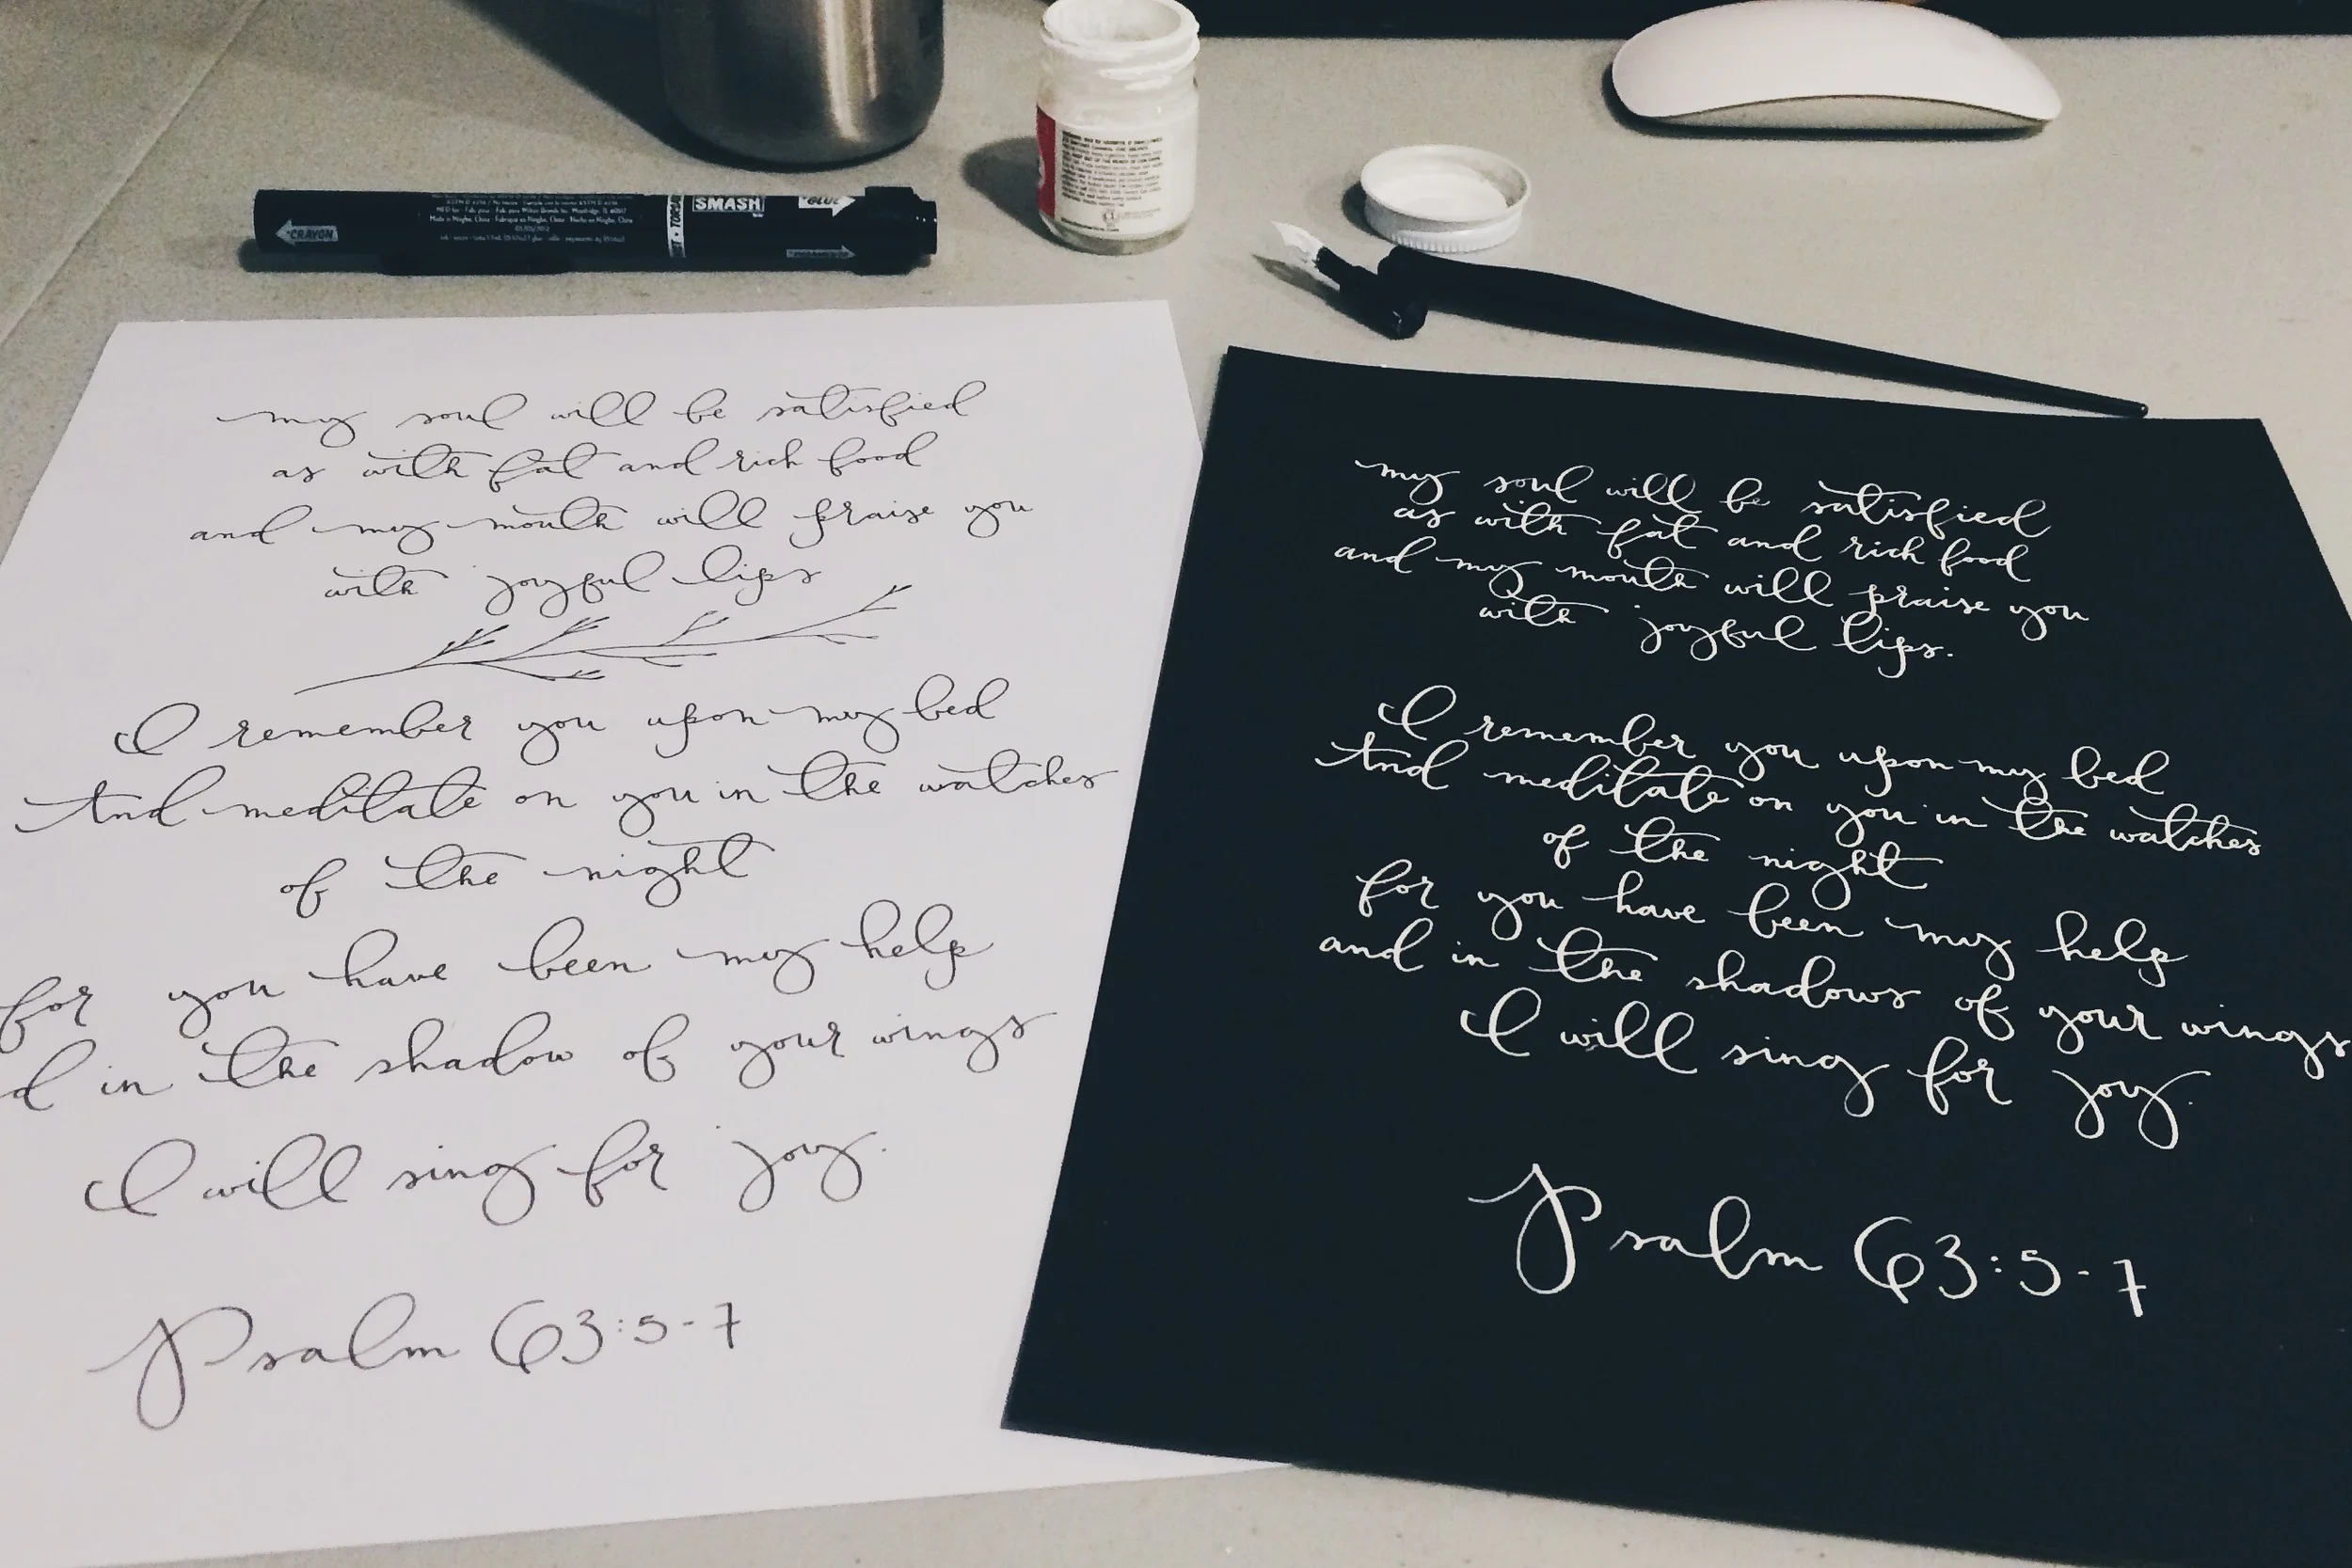 CRAYON
SMASH
GLUE
my soul will be satisfied
as with fat and rich food
and my mouth will praise you
with joyful lips
I remember you upon my bed
And meditate on you in the watches
of the night
for you have been my help
d in the shadow of your wings
I will sing for joy.
Psalm 63:5-7
my soul will be satisfied
as with fat and rich food
and my mouth will praise you
with joyful lips.
I remember you upon my bed
And meditate on you in the watches
of the night
for you have been my help
and in the shadows of your wings
I will sing for joy.
Psalm 63:5-7